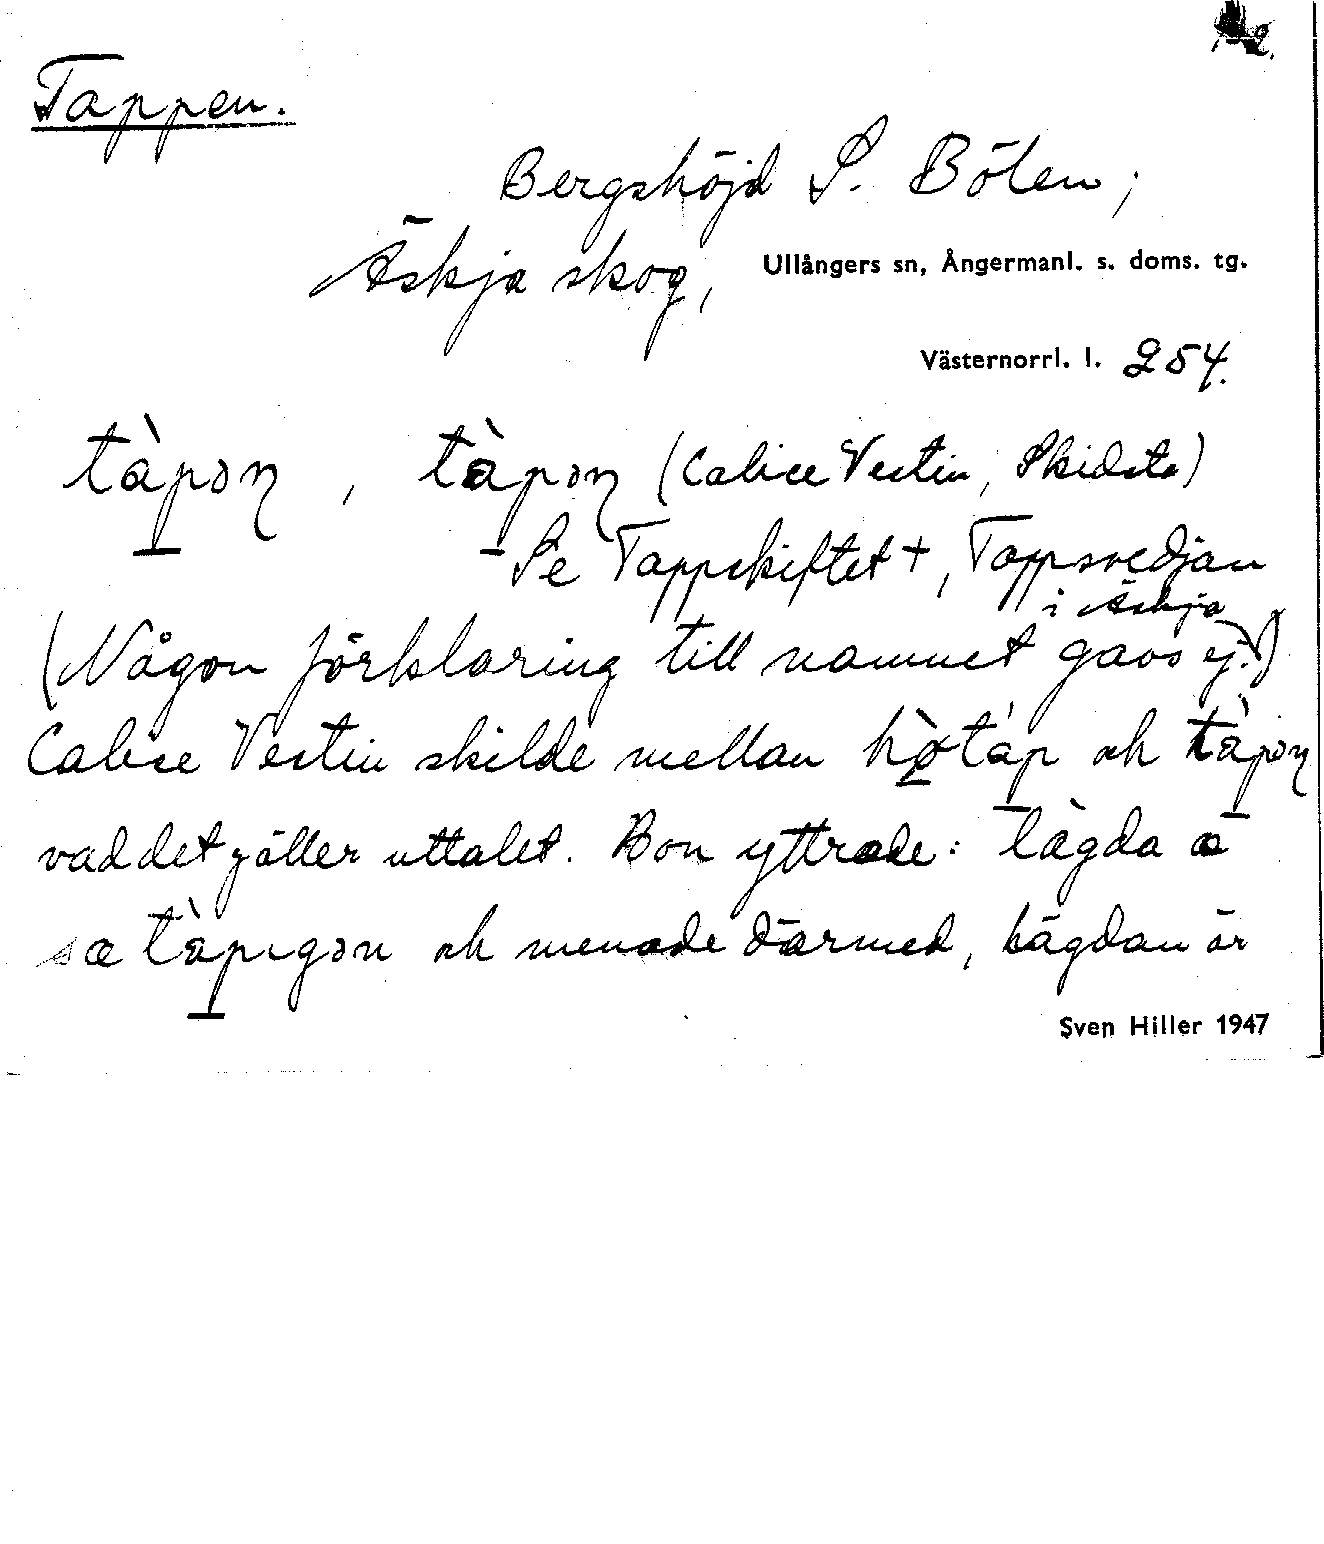 2.
Tappen.
Bergshöjd S. Bölen,
Äskja skog, Ullångers sn, Ångermanl. s. doms. tg.
Västernorrl. l. 254.
tàpən, tàpən (Calice Vestin, Skidsta)
Se Tappskiftet+, Tappsvedjan
i Äskja
(Någon förklaring till namnet gavs ej.)
Calice Vestin skilde mellan hø̀táp och tàpən
vad det gäller uttalet. Hon yttrade: lägda æ
sæ tàpıgən och menade därmed, lägdan är
Sven Hiller 1947